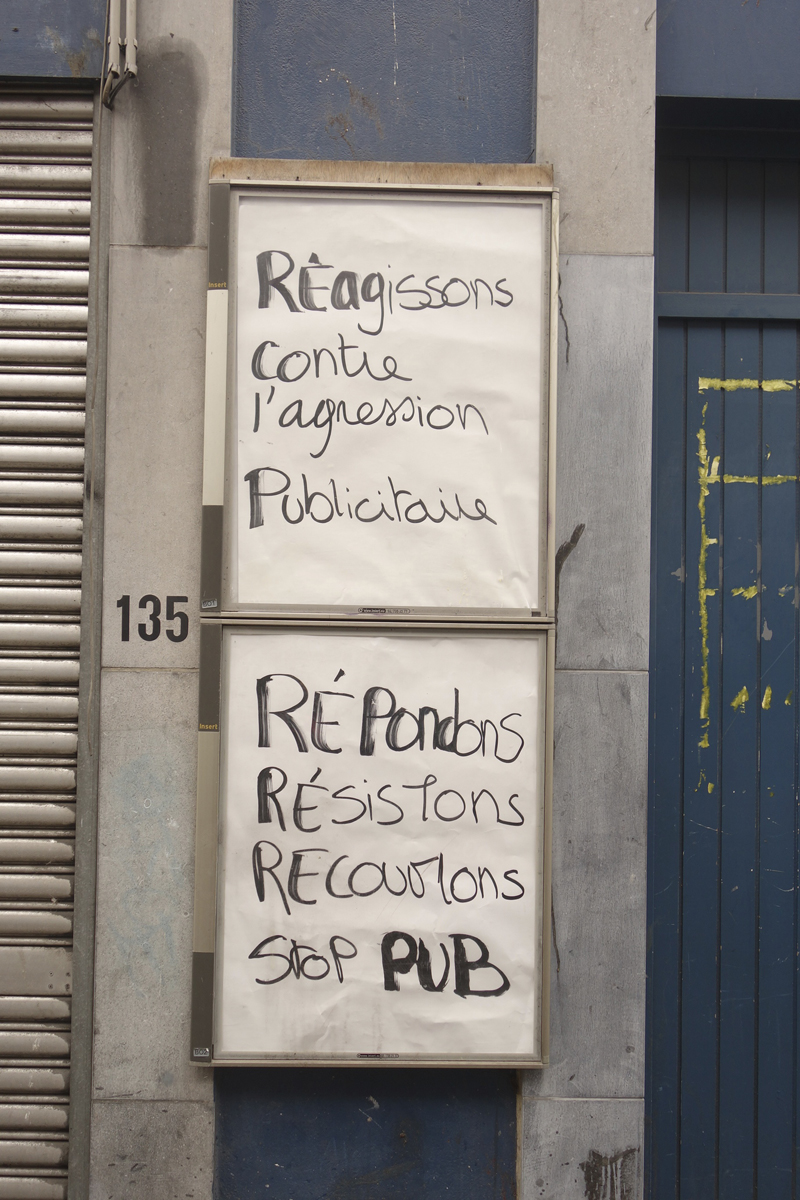 RÉagissons
contre
l'agression
Publicitaire
insert
135
RÉPondons
insert
RÉsisTons
RECouvrons
SToP PUB